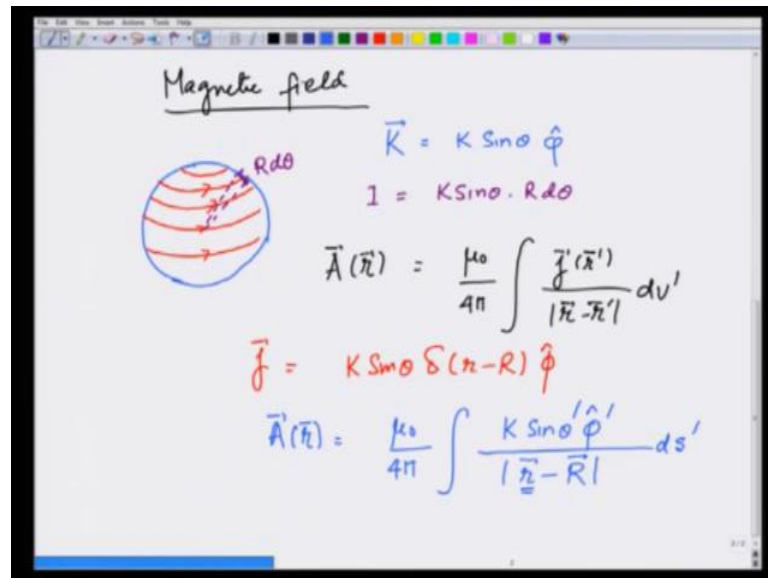 File Edit View Insert Actions Tools Help
Magnetic field
K⃗ = K Sinθ φ̂
Rdθ
I = KSinθ · Rdθ
A⃗(r⃗) = μ₀/4π ∫ j⃗(r⃗')/|r⃗-r⃗'| dv'
j⃗ = K Sinθ δ(r-R) φ̂
A⃗(r⃗) = μ₀/4π ∫ K Sinθ' φ̂'/|r⃗-R⃗| ds'
2/2
2